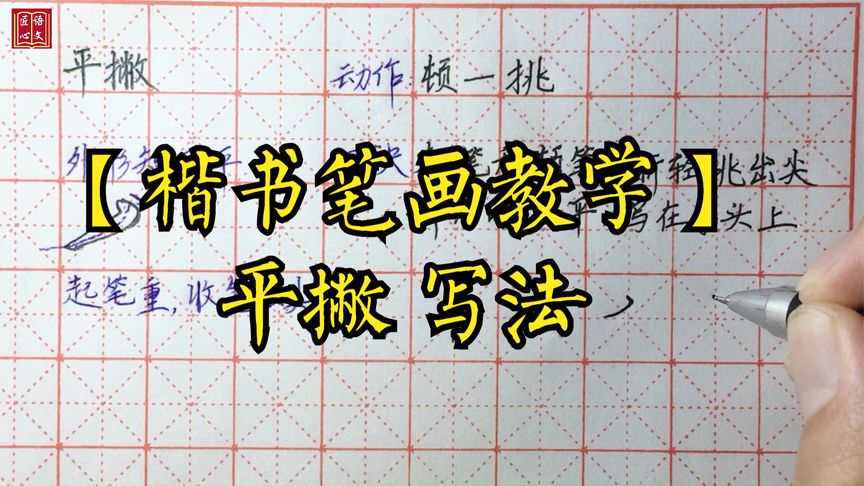 匠心语文
平撇 动作:顿一挑
【楷书笔画教学】
轻挑出尖
写在 头上
起笔重,收
平撇 写法